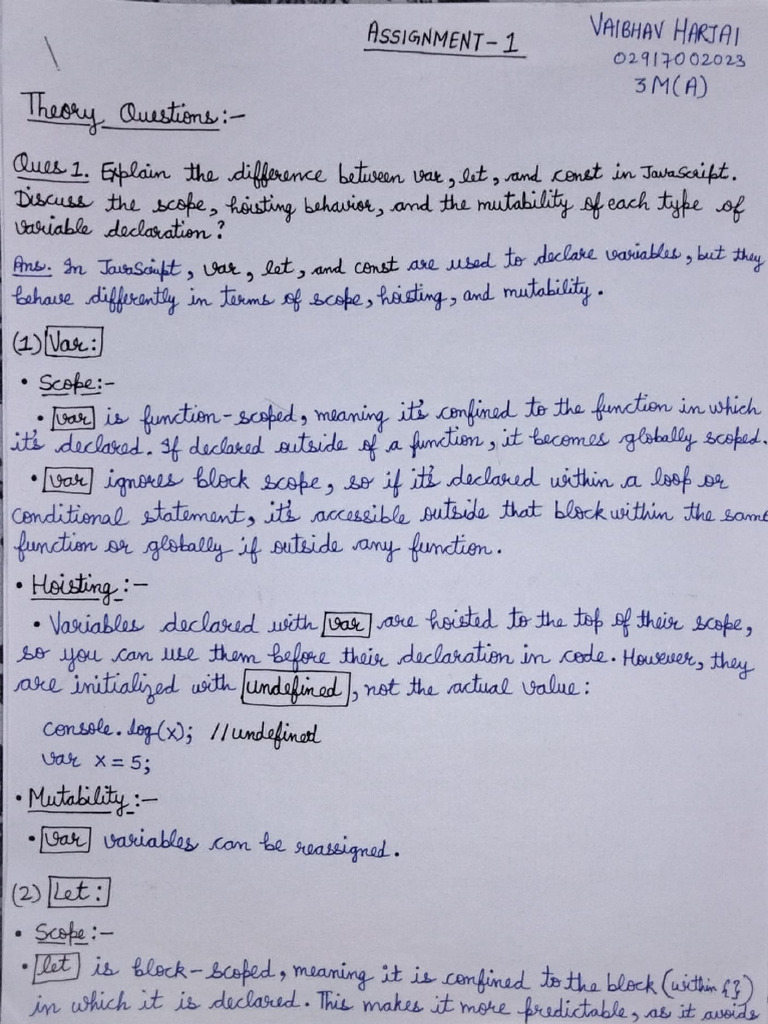 ASSIGNMENT-1
VAIBHAV HARJAI
02917002023
3M(A)
Theory Questions:-
Ques 1. Explain the difference between var, let, and const in JavaScript.
Discuss the scope, hoisting behavior, and the mutability of each type of
variable declaration?
Ans. In JavaScript, var, let, and const are used to declare variables, but they
behave differently in terms of scope, hoisting, and mutability.
(1) Var:
• Scope:-
• var is function-scoped, meaning it's confined to the function in which
it's declared. If declared outside of a function, it becomes globally scoped.
• var ignores block scope, so if it's declared within a loop or
conditional statement, it's accessible outside that block within the same
function or globally if outside any function.
• Hoisting:-
• Variables declared with var are hoisted to the top of their scope,
so you can use them before their declaration in code. However, they
are initialized with undefined, not the actual value:
console.log(x); //undefined
var x = 5;
• Mutability:-
• var variables can be reassigned.
(2) Let:
• Scope:-
• let is block-scoped, meaning it is confined to the block (within {})
in which it is declared. This makes it more predictable, as it avoids